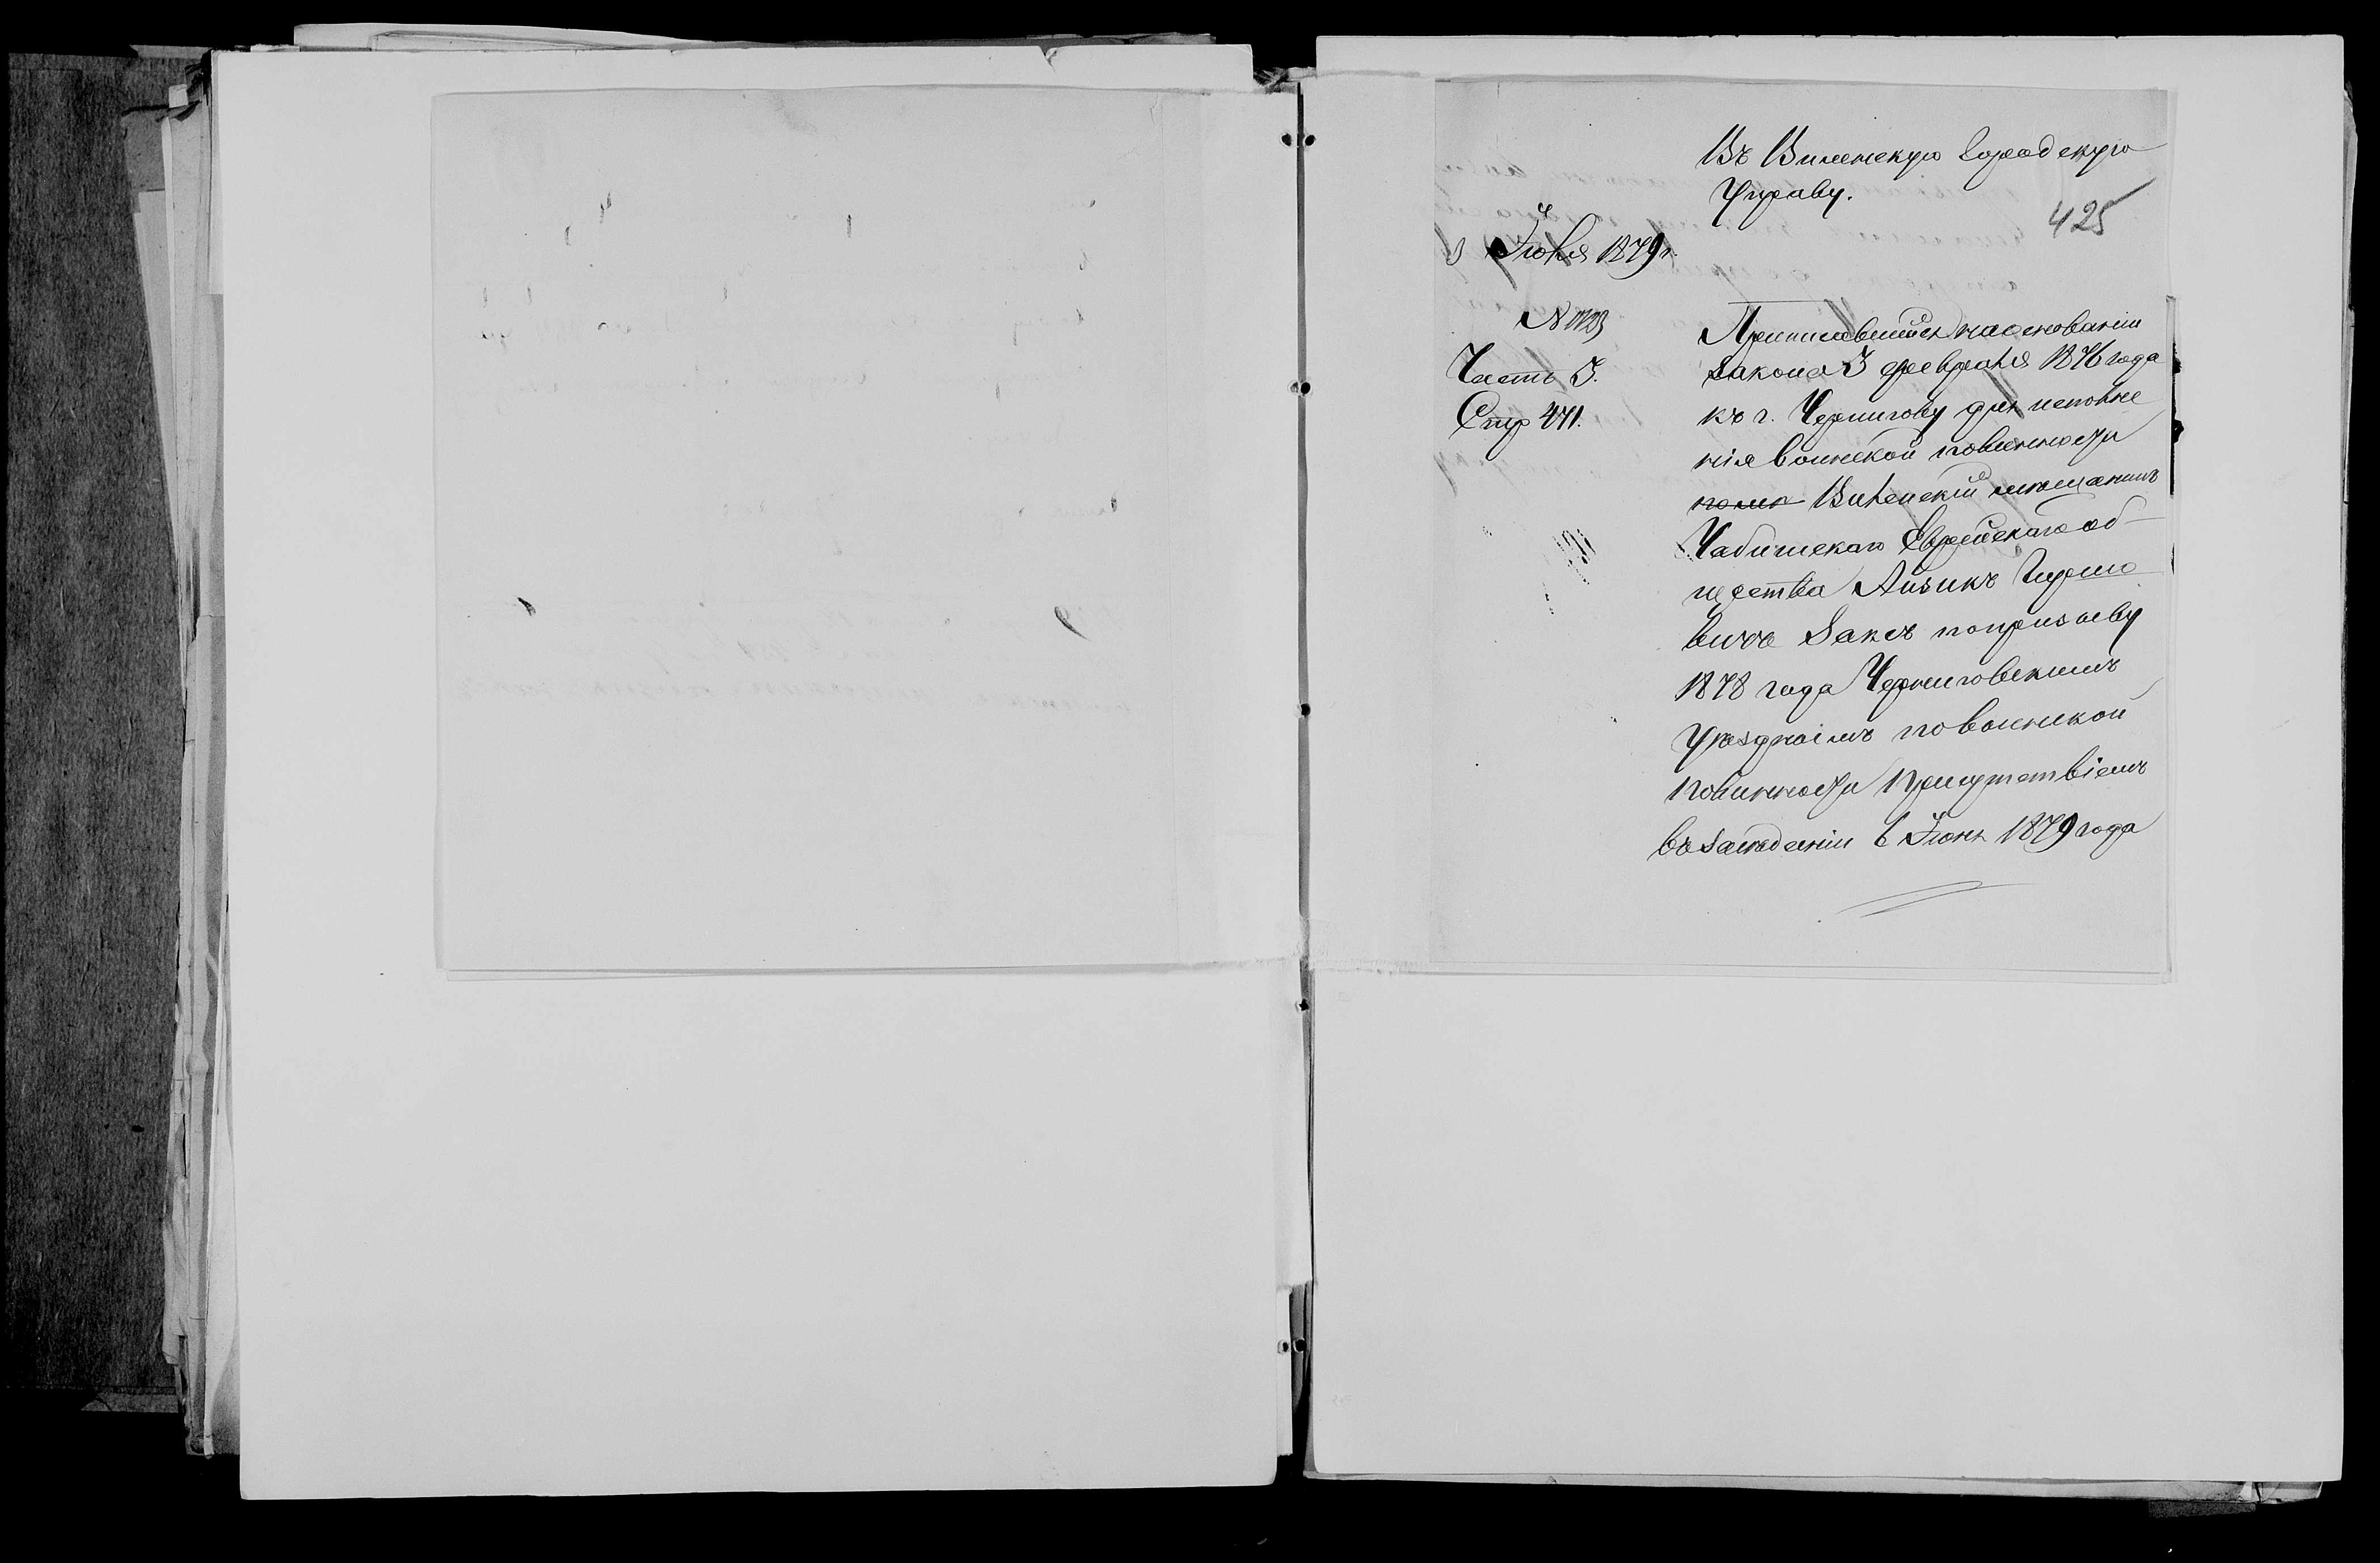 Въ Виленскую Городскую
Управу.
425
Іюня 1879 г.
№
Часть I.
Стр 471.
Приписавшійся на основаніи
Закона 3 февраля 1876 года
къ г. Чернигову для исполне
нія воинской повинности
Виленскій мѣщанинъ
Чабишскаго Еврейскаго об
щества Айзикъ Гиршо
вичъ Заксъ по призыву
1878 года Черниговскимъ
Уѣзднымъ по воинской
повинности присутствіемъ
въ засѣданіи 6 Іюня 1879 года